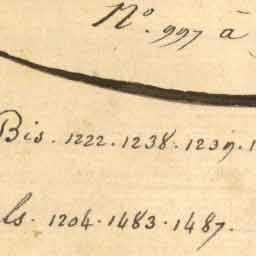 N.º 997 à
Bis. 1222. 1238. 1239. 1
ls. 1204. 1483. 1487.